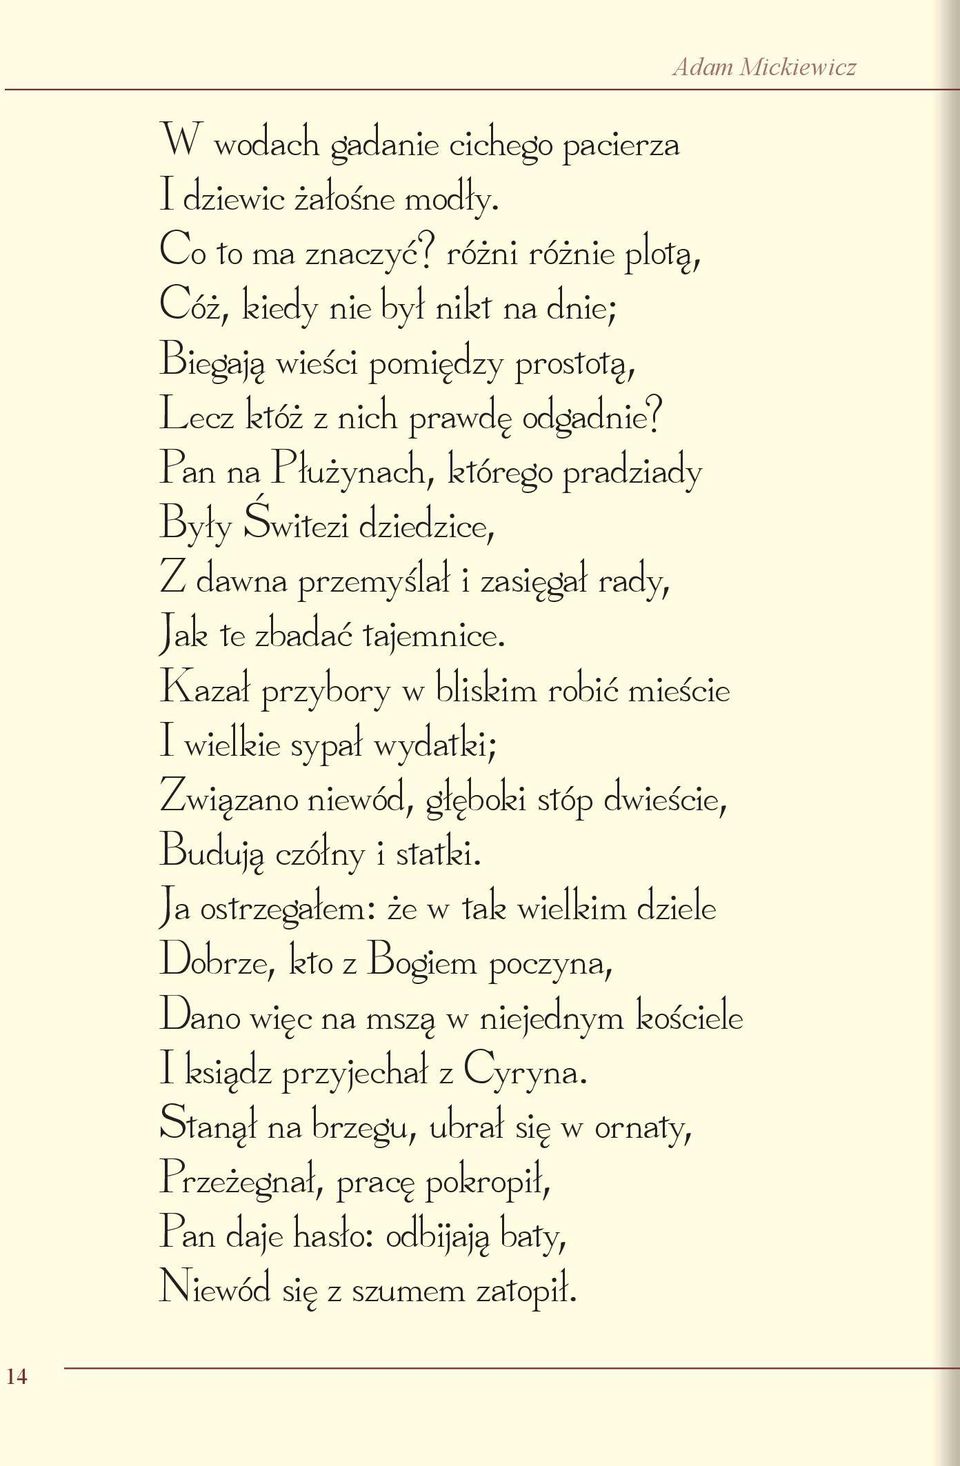 Adam Mickiewicz
W wodach gadanie cichego pacierza
I dziewic żałośne modły.
Co to ma znaczyć? różni różnie plotą,
Cóż, kiedy nie był nikt na dnie;
Biegają wieści pomiędzy prostotą,
Lecz któż z nich prawdę odgadnie?
Pan na Płużynach, którego pradziady
Były Świtezi dziedzice,
Z dawna przemyślał i zasięgał rady,
Jak te zbadać tajemnice.
Kazał przybory w bliskim robić mieście
I wielkie sypał wydatki;
Związano niewód, głęboki stóp dwieście,
Budują czółny i statki.
Ja ostrzegałem: że w tak wielkim dziele
Dobrze, kto z Bogiem poczyna,
Dano więc na mszą w niejednym kościele
I ksiądz przyjechał z Cyryna.
Stanął na brzegu, ubrał się w ornaty,
Przeżegnał, pracę pokropił,
Pan daje hasło: odbijają baty,
Niewód się z szumem zatopił.
14